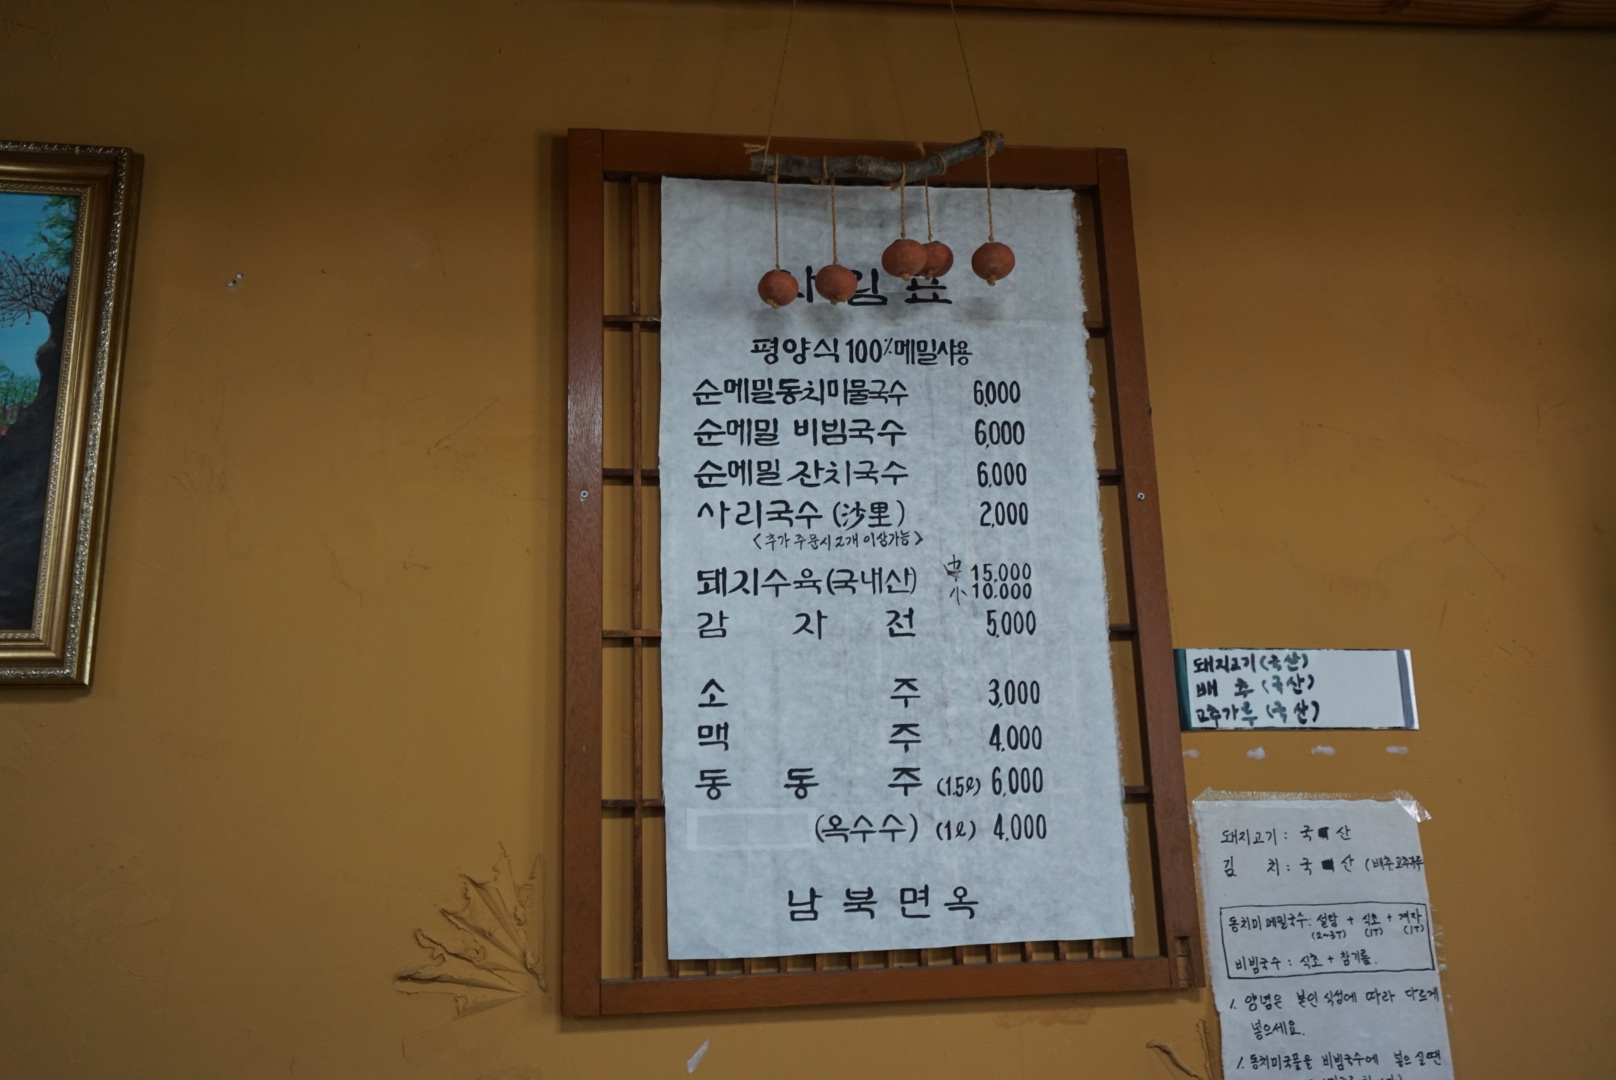 차림표
평양식 100% 메밀사용
순메밀동치미물국수 6,000
순메밀 비빔국수 6,000
순메밀 잔치국수 6,000
사리국수 (沙里) 2,000
<추가 주문시 2개 이상가능>
돼지수육(국내산) 中 15,000
小 10,000
감 자 전 5,000
소 주 3,000
맥 주 4,000
동 동 주 (1.5ℓ) 6,000
(옥수수) (1ℓ) 4,000
남북면옥
돼지고기(국산)
배 추 (국산)
고추가루 (국산)
돼지고기 : 국 산
김 치 : 국 산 (배추,고추가루
동치미 메밀국수: 설탕 + 식초 + 겨자
(2~3T) (1T) (1T)
비빔국수 : 식초 + 참기름.
양념은 본인 식성에 따라 다르게
넣으세요.
동치미국물을 비빔국수에 넣으실땐